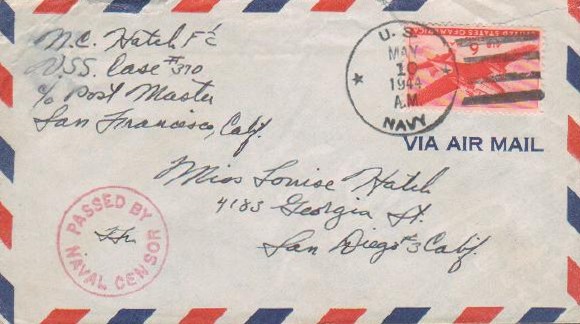 N.C. Hatch F¹c
U.S.S. Case #370
c/o Post Master
San Francisco, Calif.
U. S.
MAY
10
1944
A.M.
NAVY
UNITED STATES OF AMERICA
6¢
VIA AIR MAIL
Miss Louise Hatch
4183 Georgia St.
San Diego #3 Calif.
PASSED BY
NAVAL CENSOR